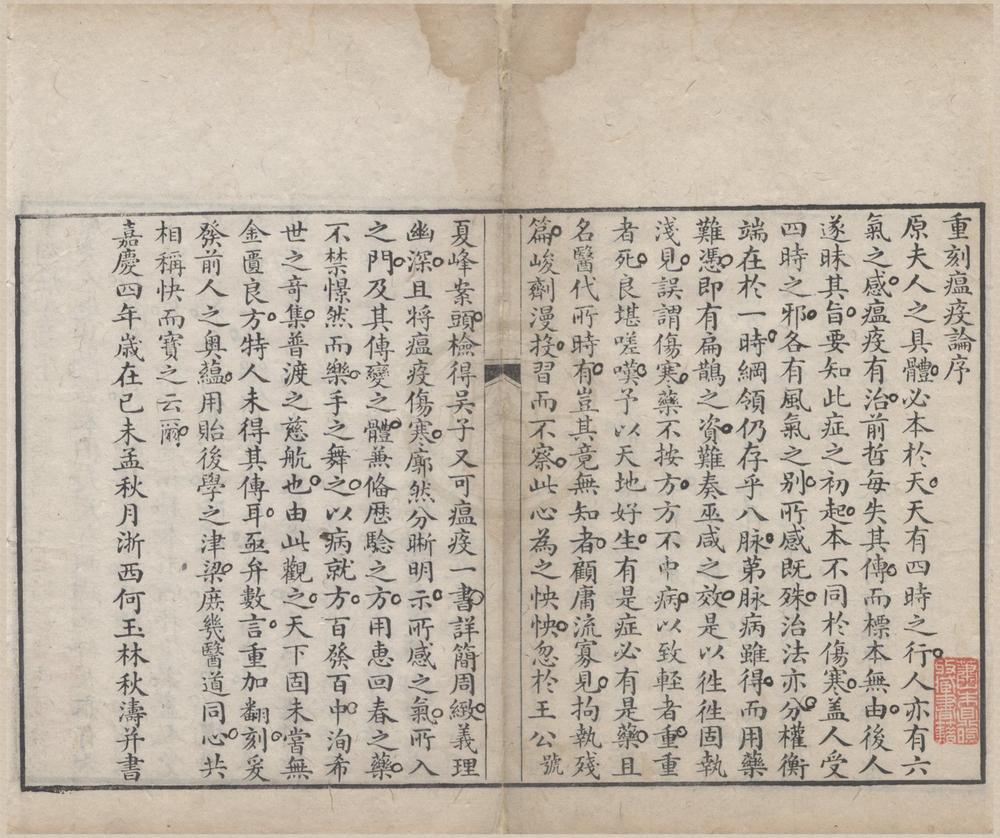 重刻瘟疫論序
原夫人之具體必本於天天有四時之行人亦有六
氣之感瘟疫有治前哲每失其傳而標本無由後人
遂昧其旨要知此症之初起本不同於傷寒盖人受
四時之邪各有風氣之别所感既殊治法亦分權衡
端在於一時綱領仍存乎八脉苐脉病雖得而用藥
難憑即有扁鵲之資難奏巫咸之效是以徃徃固執
淺見誤謂傷寒藥不按方方不中病以致輕者重重
者死良堪嗟嘆予以天地好生有是症必有是藥且
名醫代所時有豈其竟無知者顧庸流寡見拘執殘
篇峻劑漫投習而不察此心為之怏怏忽於王公號
夏峰案頭檢得吴子又可瘟疫一書詳簡周緻義理
幽深且將瘟疫傷寒廓然分晰明示所感之氣所入
之門及其傳變之體兼俻歴騐之方用恵回春之藥
不禁憬然而樂手之舞之以病就方百發百中洵希
世之奇集普渡之慈航也由此觀之天下固未嘗無
金匱良方特人未得其傳耳亟弁數言重加翻刻爰
發前人之奥蘊用貽後學之津梁庶幾醫道同心共
相稱快而寳之云爾
嘉慶四年歳在己未孟秋月浙西何玉林秋濤并書